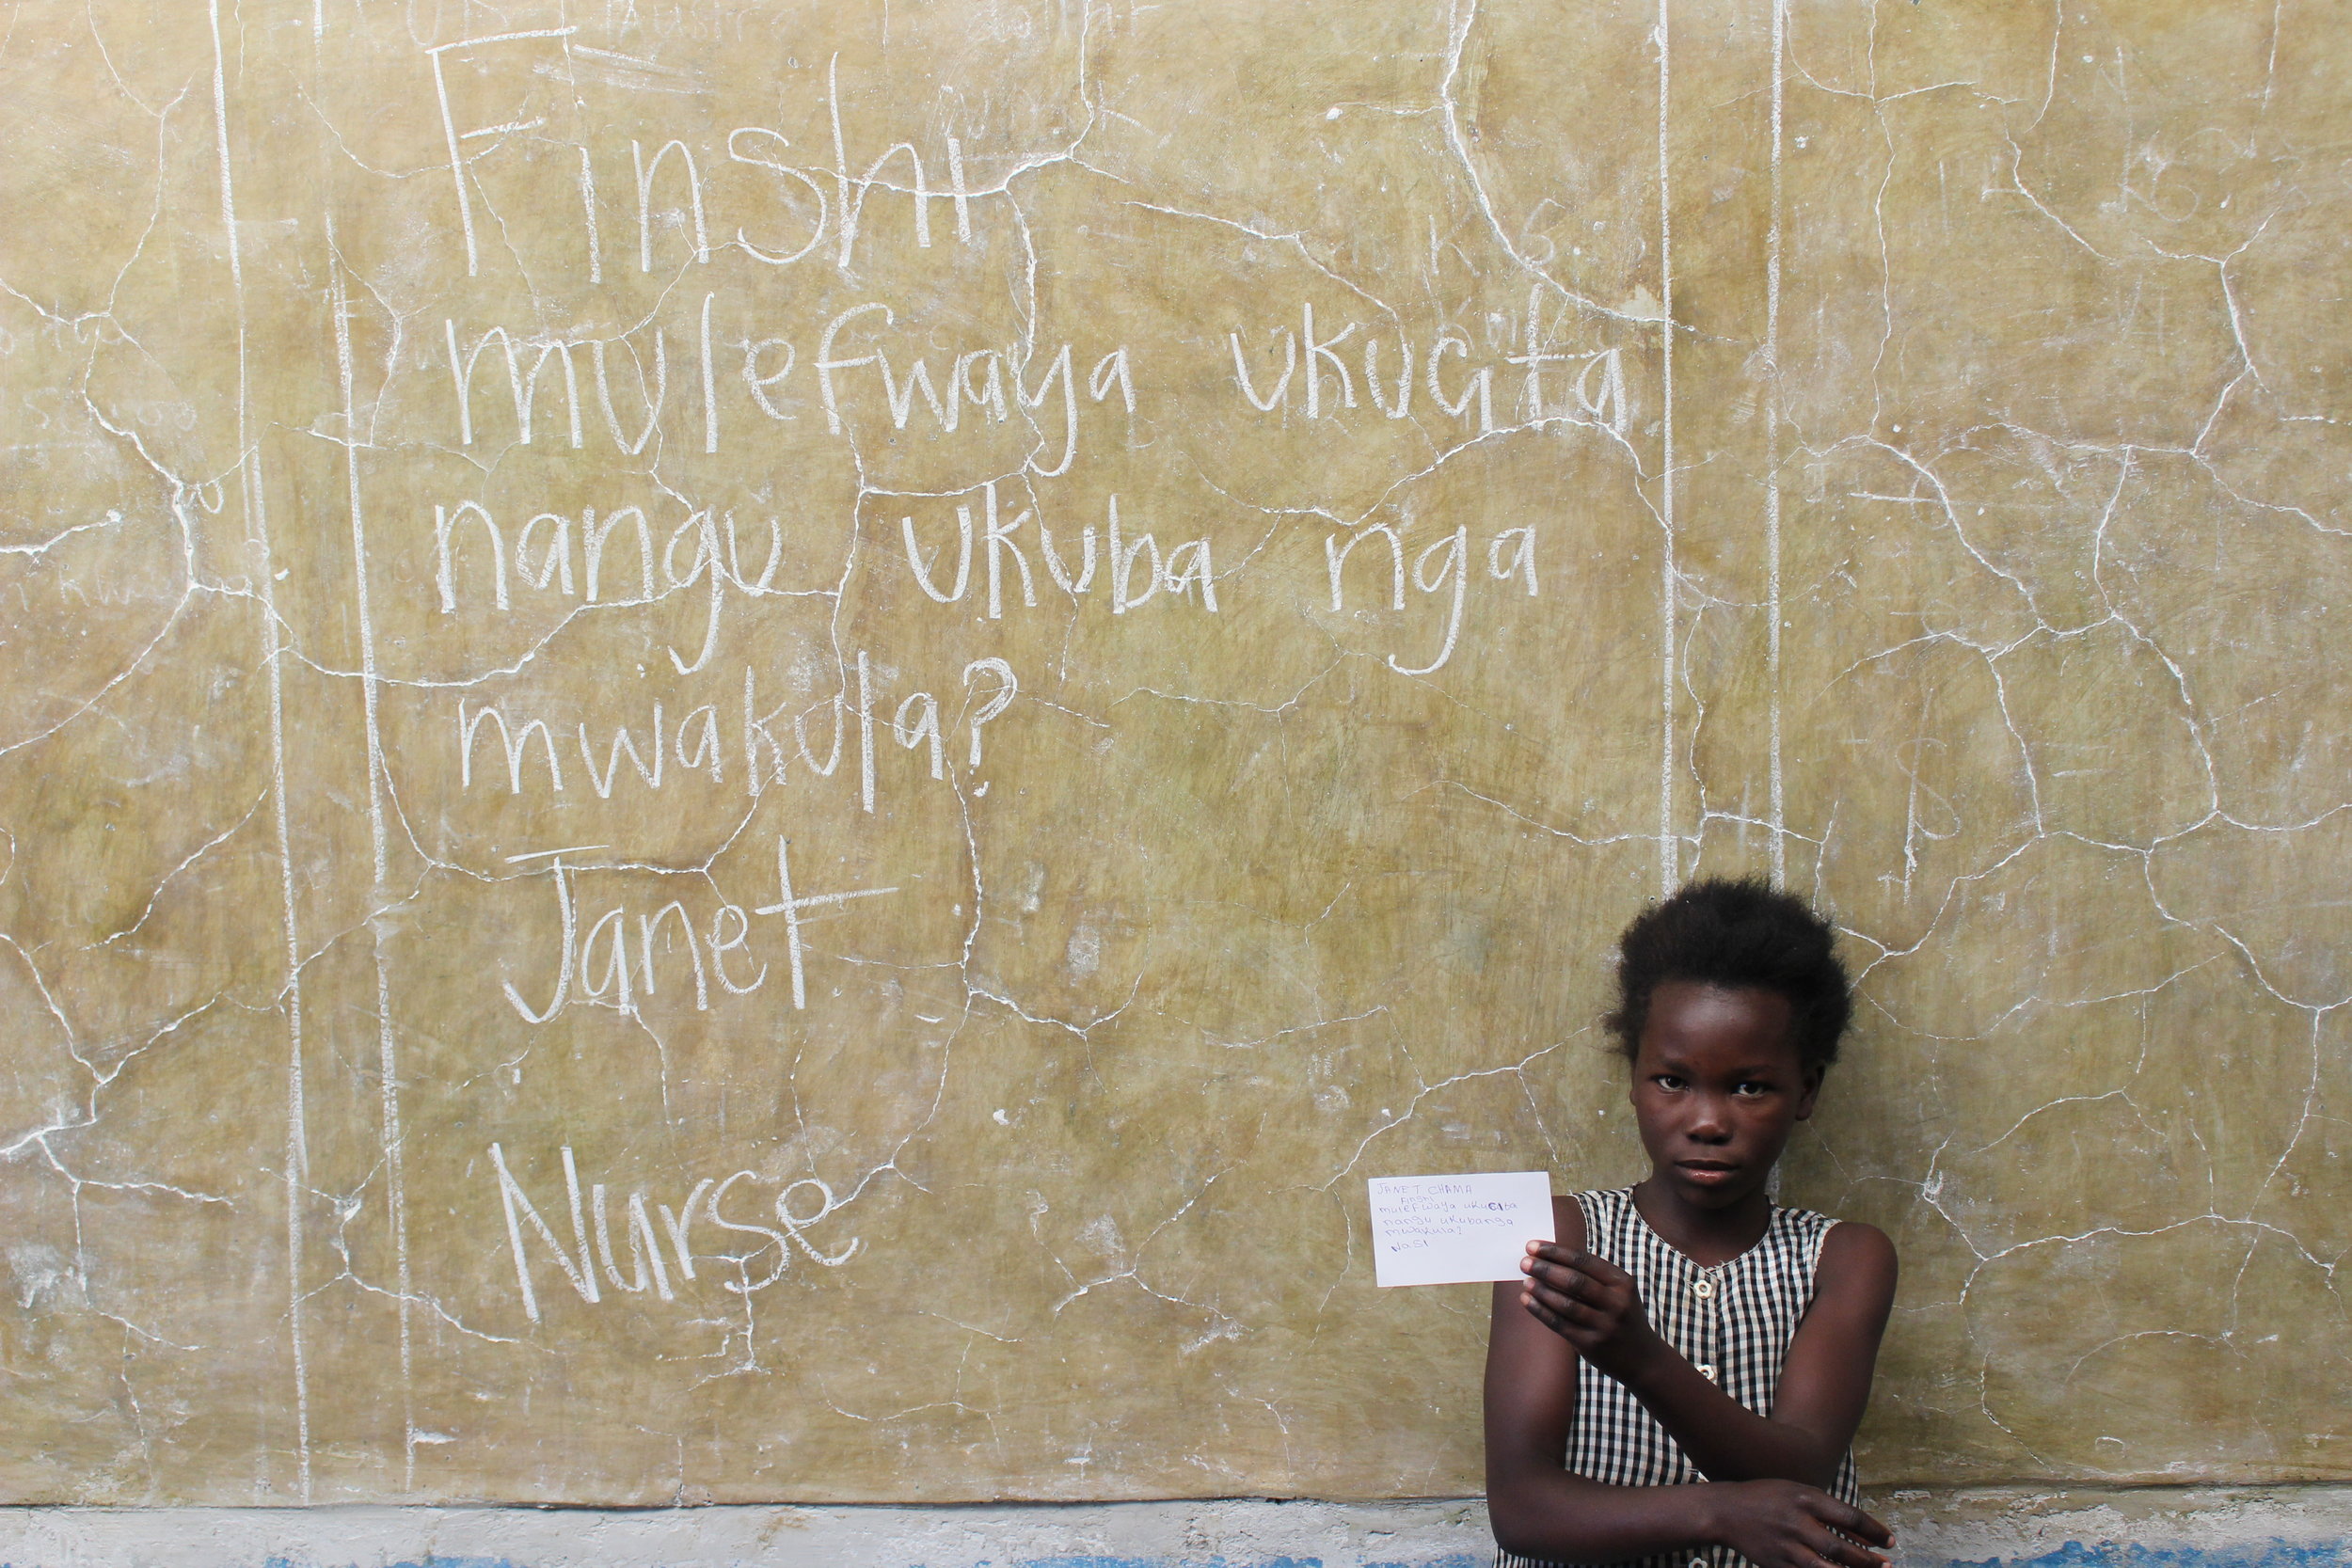 Finshi
mulefwaya ukucita
nangu ukuba nga
mwakula?
Janet
Nurse
JANET CHAMA
Finshi
mulefwaya ukucita
nangu ukubanga
mwakula?
Nasi